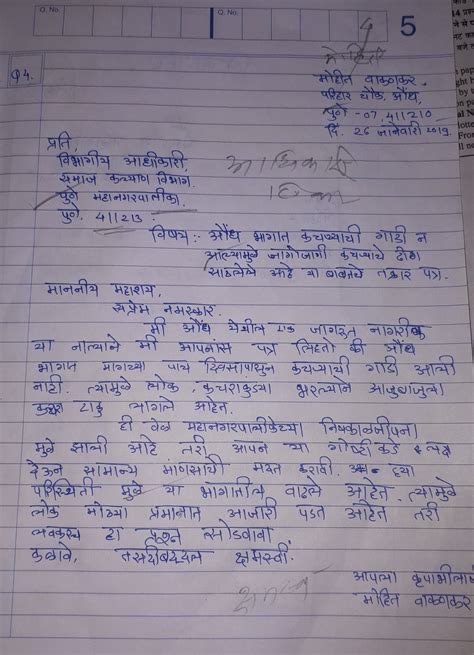 Q. No.
Q. No.
5
4
Q4.
मोहीत वाकणकर,
परिहार चौक, औंध,
पुणे -07, 411210
दि. 26 जानेवारी 2019.
प्रति,
विभागीय आधीकारी,
समाज कल्याण विभाग.
पुणे महानगरपालीका.
पुणे. 411213.
विषय :- औंध भागात कचऱ्याची गाडी न
आल्यामुळे जागोजागी कचऱ्याचे ढीग
साठलेले आहे या बाबतचे तक्रार पत्र.
माननीय महाशय,
सप्रेम नमस्कार.
मी औंध येथील एक जागरूत नागरीक
या नात्याने मी आपनांस पत्र लिहतो की औंध
भागात मागच्या पाच दिवसापासुन कचऱ्याची गाडी आली
नाही. त्यामुळे लोक, कचराकुंड्या भरल्याने आजुबाजुला
कचरा टाकु लागले आहेत.
ही वेळ महानगरपालीकेच्या निष्काळजीपना
मुळे झाली आहे तरी आपन या गोष्टीकडे लक्ष
देऊन सामान्य माणसाची मदत करावी. ह्या
परिस्थिती मुळे या भागातील वाढले आहेत. त्यामुळे
लोक मोठ्या प्रमानात आजारी पडत आहेत तरी
लवकरच हा प्रश्न सोडवावा
कळावे, तसदीबद्दल क्षमस्वी.
आपला कृपाभीलाषी
मोहित वाकणकर